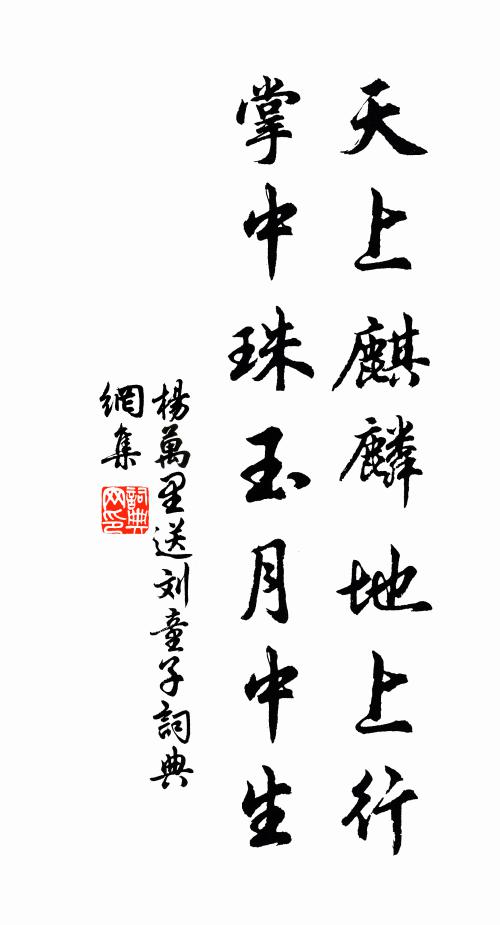 天上麒麟地上行
掌中珠玉月中生
楊萬里送刘童子詞典
網集
詞典
网印